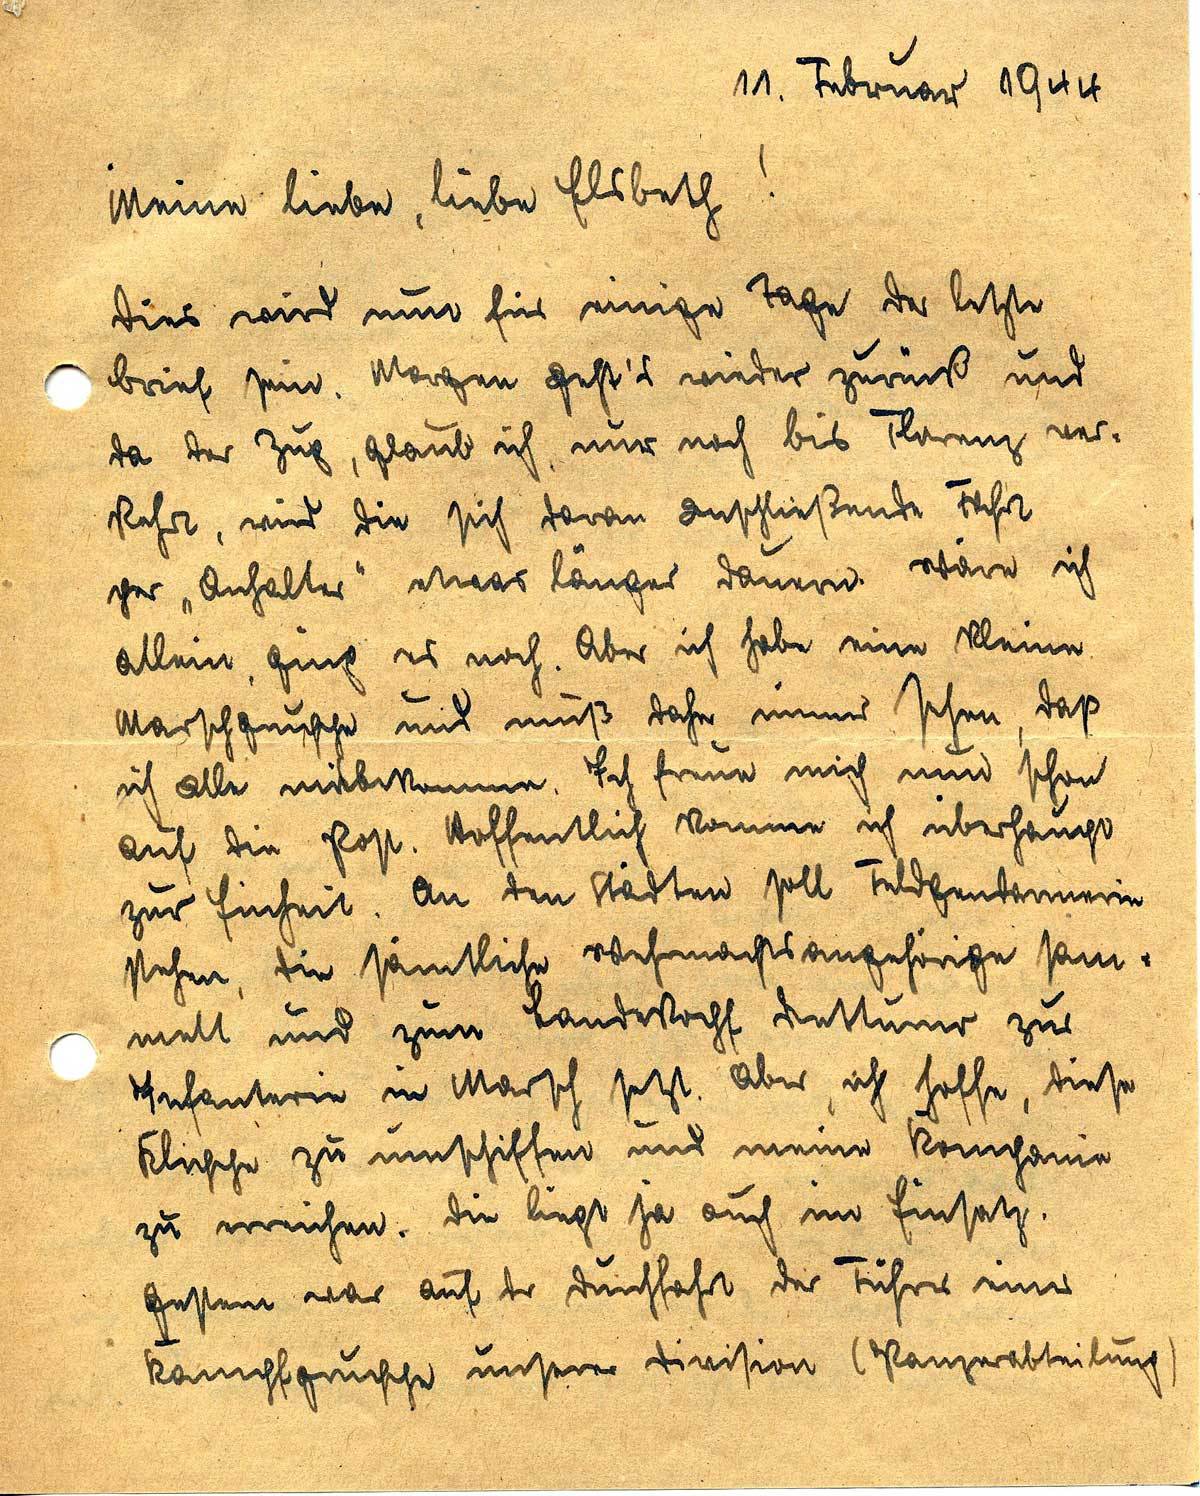 11. Februar 1944
Meine liebe, liebe Elsbeth!
Dies wird nun für einige Tage der letzte
Brief sein. Morgen geht's wieder zurück und
da der Zug, glaub ich, nur noch bis Florenz ver-
kehrt, wird die sich daran anschließende Fahrt
per „Anhalter" etwas länger dauern. Wäre ich
allein, ging es noch. Aber ich habe eine kleine
Marschgruppe und muß daher immer sehen, daß
ich alle mitbekomme. Ich freue mich nun schon
auf die Post. Hoffentlich komme ich überhaupt
zur Einheit. An den Städten soll Feldgendarmerie
stehen, die sämtliche Wehrmachtsangehörige sam-
melt und zum Landekopf Nettuno zur
Infanterie in Marsch setzt. Aber, ich hoffe, diese
Klippe zu umschiffen und meine Kompanie
zu erreichen. Die liegt ja auch im Einsatz.
Gestern war auf der Durchfahrt der Führer einer
Kampfgruppe unserer Division (Panzerabteilung)